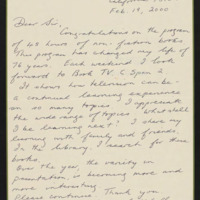 Feb. 19, 2000
Dear Sir,
Congratulations on the program
of 48 hours of non-fiction books
This program has changed my life of
76 years. Each weekend I look
forward to Book TV, C Span 2
It shows how television can be
a continual learning experience
on so many topics. I appreciate
the wide range of topics. "What shall
I be learning next" I show my
learning with family and friends.
In the library, I search for these
books.
Over the year, the variety in
presentation is becoming more and
more interesting
Please continue. Thank you